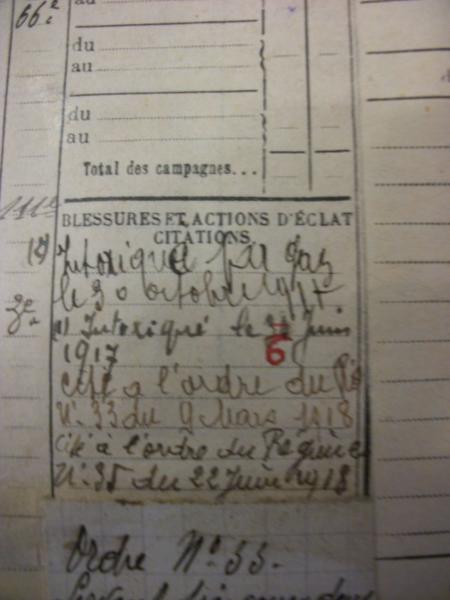 66.e
au
du
au
du
au
Total des campagnes...
BLESSURES ET ACTIONS D'ÉCLAT
CITATIONS
Intoxiqué par gaz
le 30 octobre 1917
Intoxiqué le Juin
6
1917
Cité à l'ordre du
N° 33 du 9 Mars 1918
Cité à l'ordre du
N° 35 du 22 Juin 1918
Ordre N° 33.